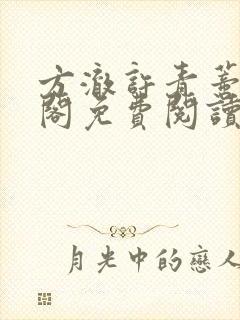 方澈許青蓋
閣免費閱讀
月光中的戀人